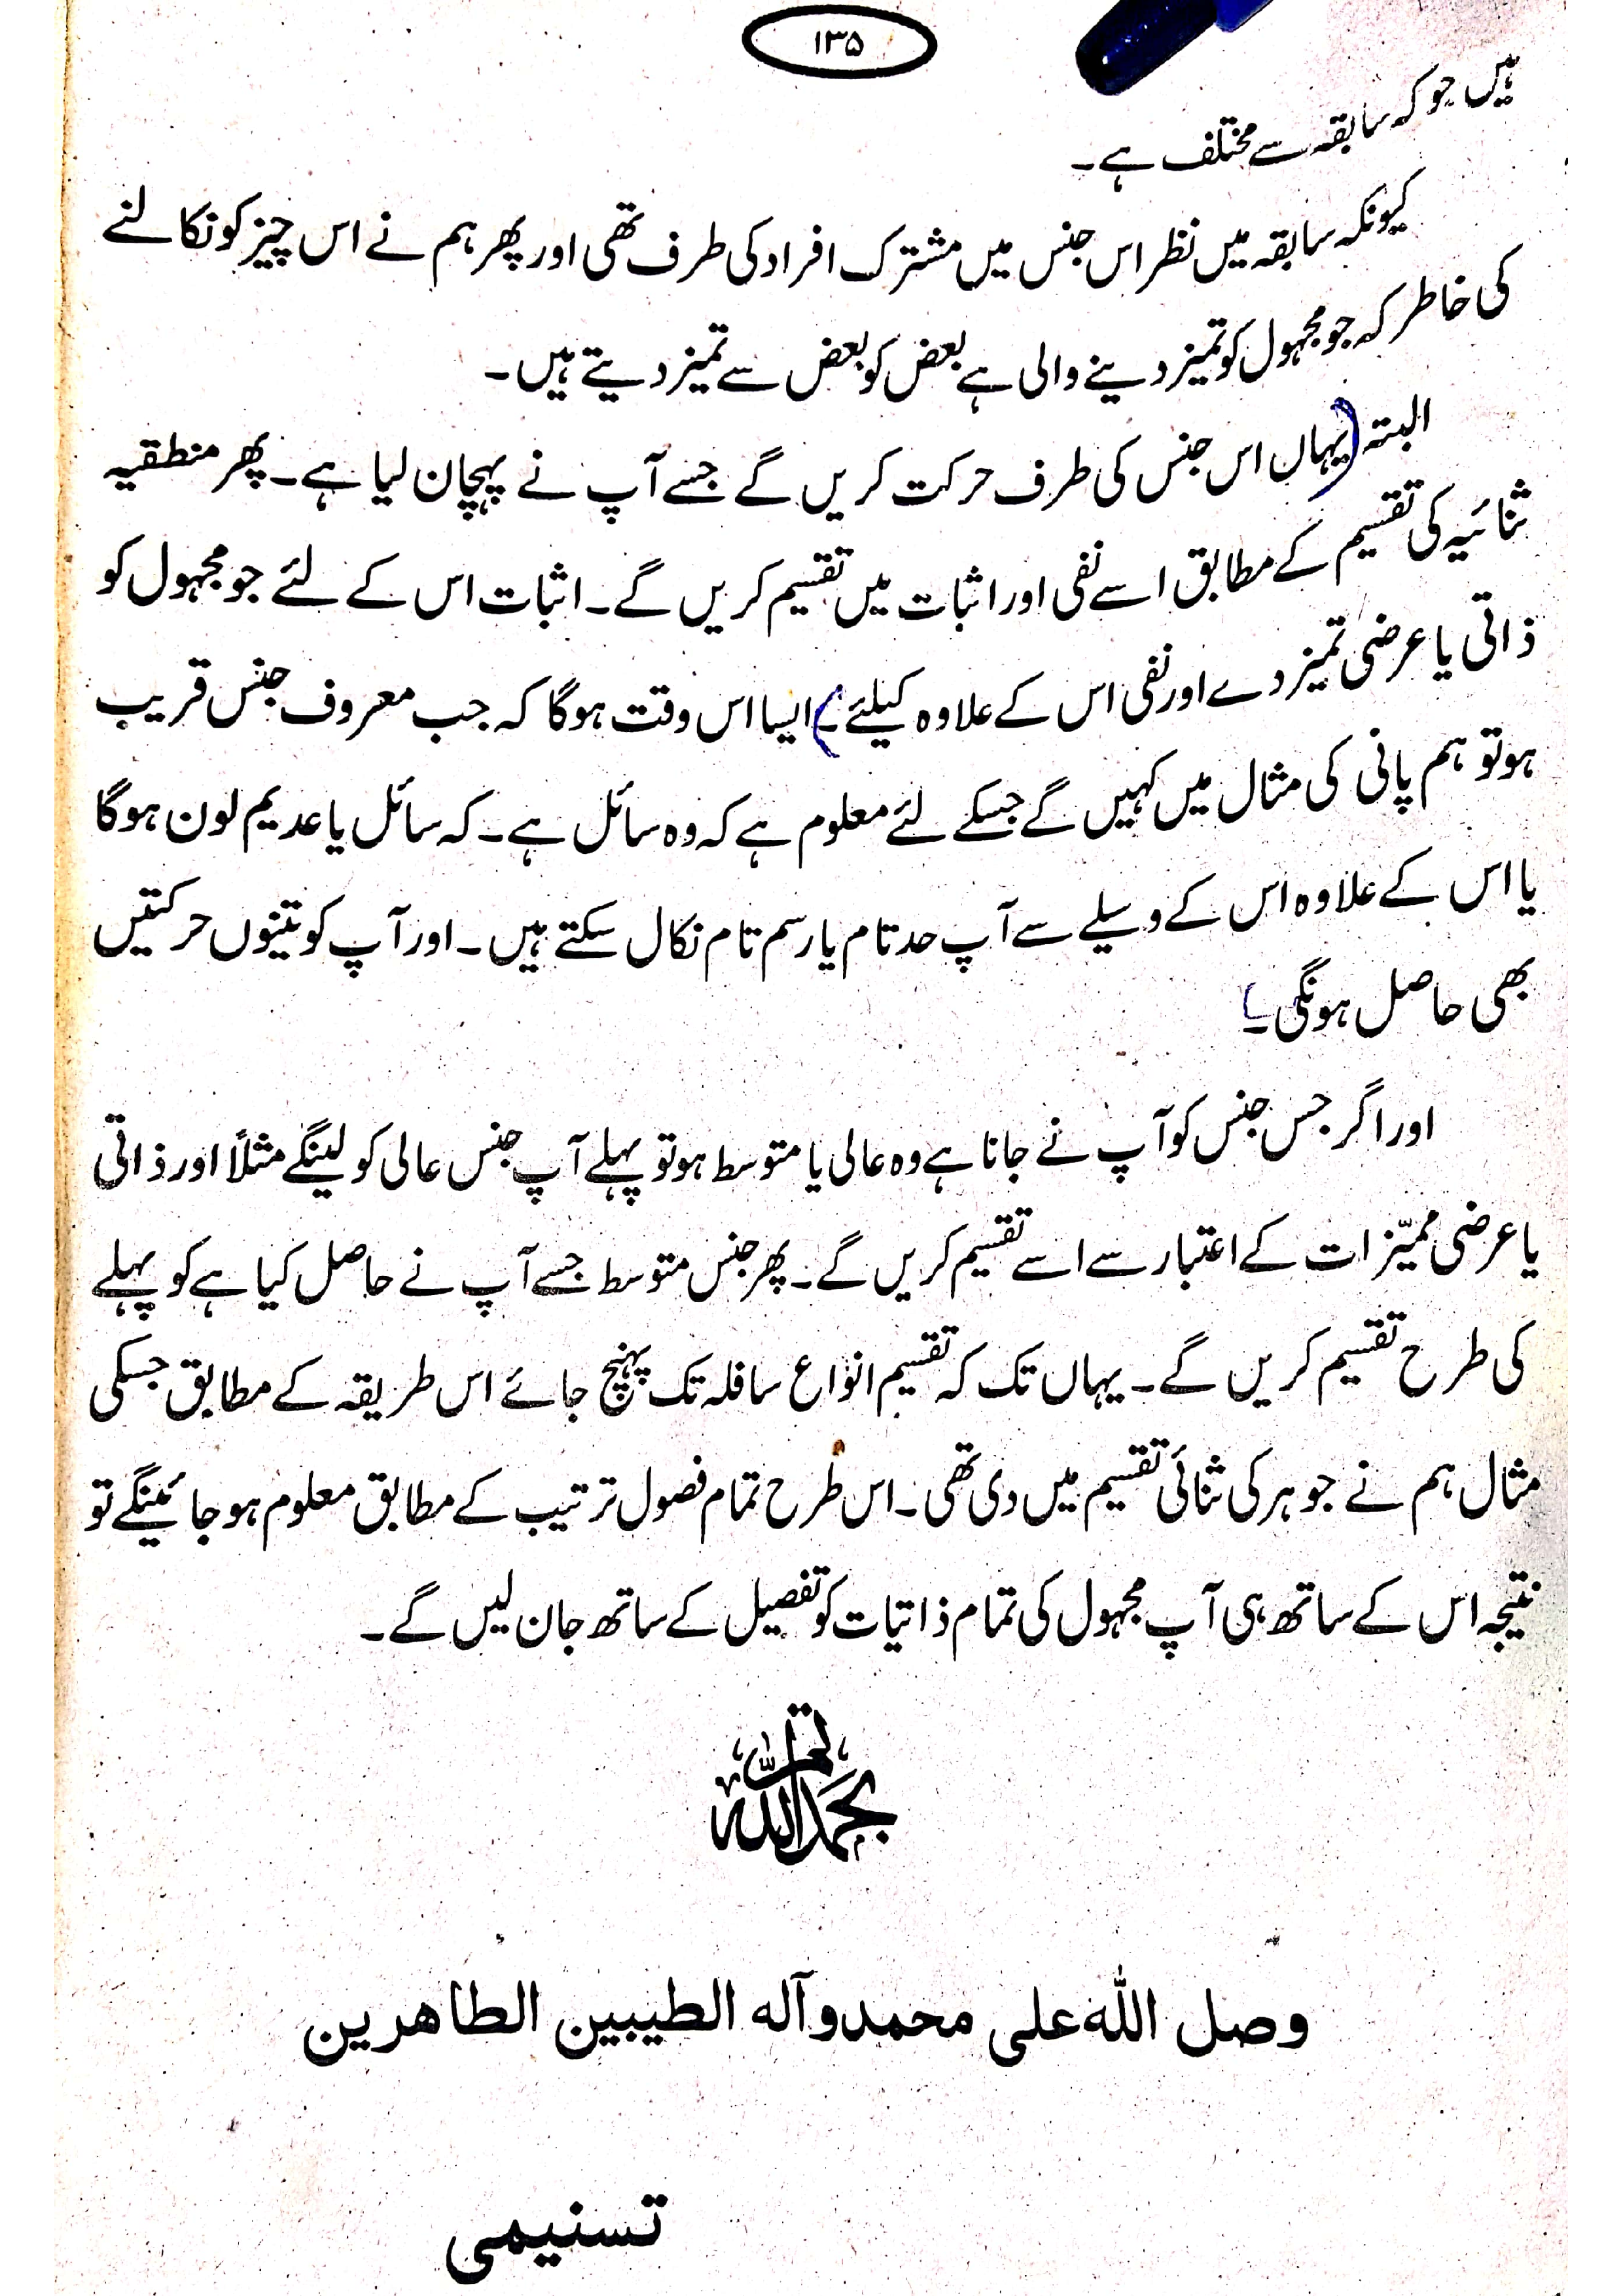 ۱۳۵
ہیں جو کہ سابقہ سے مختلف ہے۔
کیونکہ سابقہ میں نظر اس جنس میں مشترک افراد کی طرف تھی اور پھر ہم نے اس چیز کو نکالنے
کی خاطر کہ جو مجہول کو تمیز دینے والی ہے بعض کو بعض سے تمیز دیتے ہیں۔
البتہ (یہاں اس جنس کی طرف حرکت کریں گے جسے آپ نے پہچان لیا ہے۔ پھر منطقیہ
ثنائیہ کی تقسیم کے مطابق اسے نفی اور اثبات میں تقسیم کریں گے۔ اثبات اس کے لئے جو مجہول کو
ذاتی یا عرضی تمیز دے اور نفی اس کے علاوہ کیلئے۔) ایسا اس وقت ہوگا کہ جب معروف جنس قریب
ہو تو ہم پانی کی مثال میں کہیں گے جسکے لئے معلوم ہے کہ وہ سائل ہے۔ کہ سائل یا عدیم لون ہوگا
یا اس کے علاوہ اس کے وسیلے سے آپ حد تام یا رسم تام نکال سکتے ہیں۔ اور آپ کو تینوں حرکتیں
بھی حاصل ہونگی۔
اور اگر جس جنس کو آپ نے جانا ہے وہ عالی یا متوسط ہو تو پہلے آپ جنس عالی کو لینگے مثلاً اور ذاتی
یا عرضی ممیّزات کے اعتبار سے اسے تقسیم کریں گے۔ پھر جنس متوسط جسے آپ نے حاصل کیا ہے کو پہلے
کی طرح تقسیم کریں گے۔ یہاں تک کہ تقسیم انواع سافلہ تک پہنچ جائے اس طریقہ کے مطابق جسکی
مثال ہم نے جوہر کی ثنائی تقسیم میں دی تھی۔ اس طرح تمام فصول ترتیب کے مطابق معلوم ہو جائینگے تو
نتیجہ اس کے ساتھ ہی آپ مجہول کی تمام ذاتیات کو تفصیل کے ساتھ جان لیں گے۔
تمت بحمد اللہ
وصل اللہ علی محمد وآلہ الطیبین الطاهرین
تسنیمی